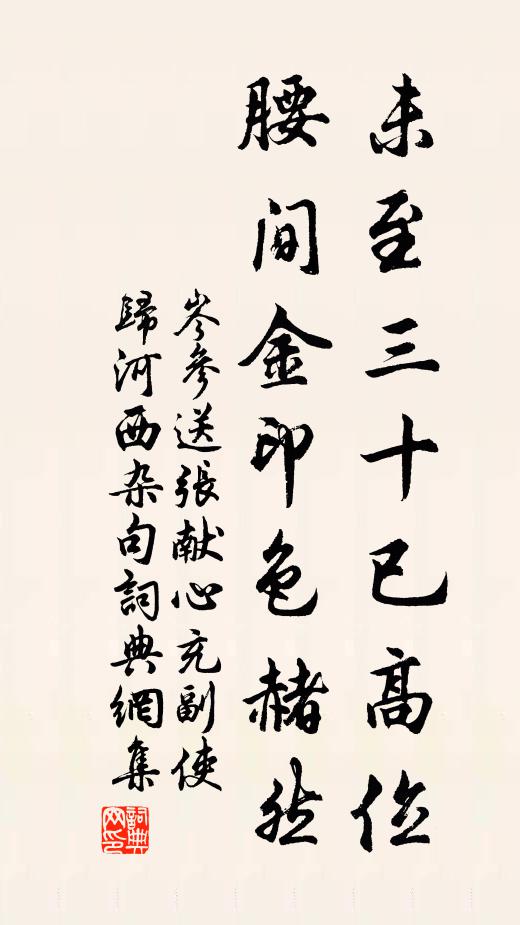 未至三十已高位
腰間金印色赭然
岑參送張献心充副使
歸河西杂句詞典網集
詞典
网印